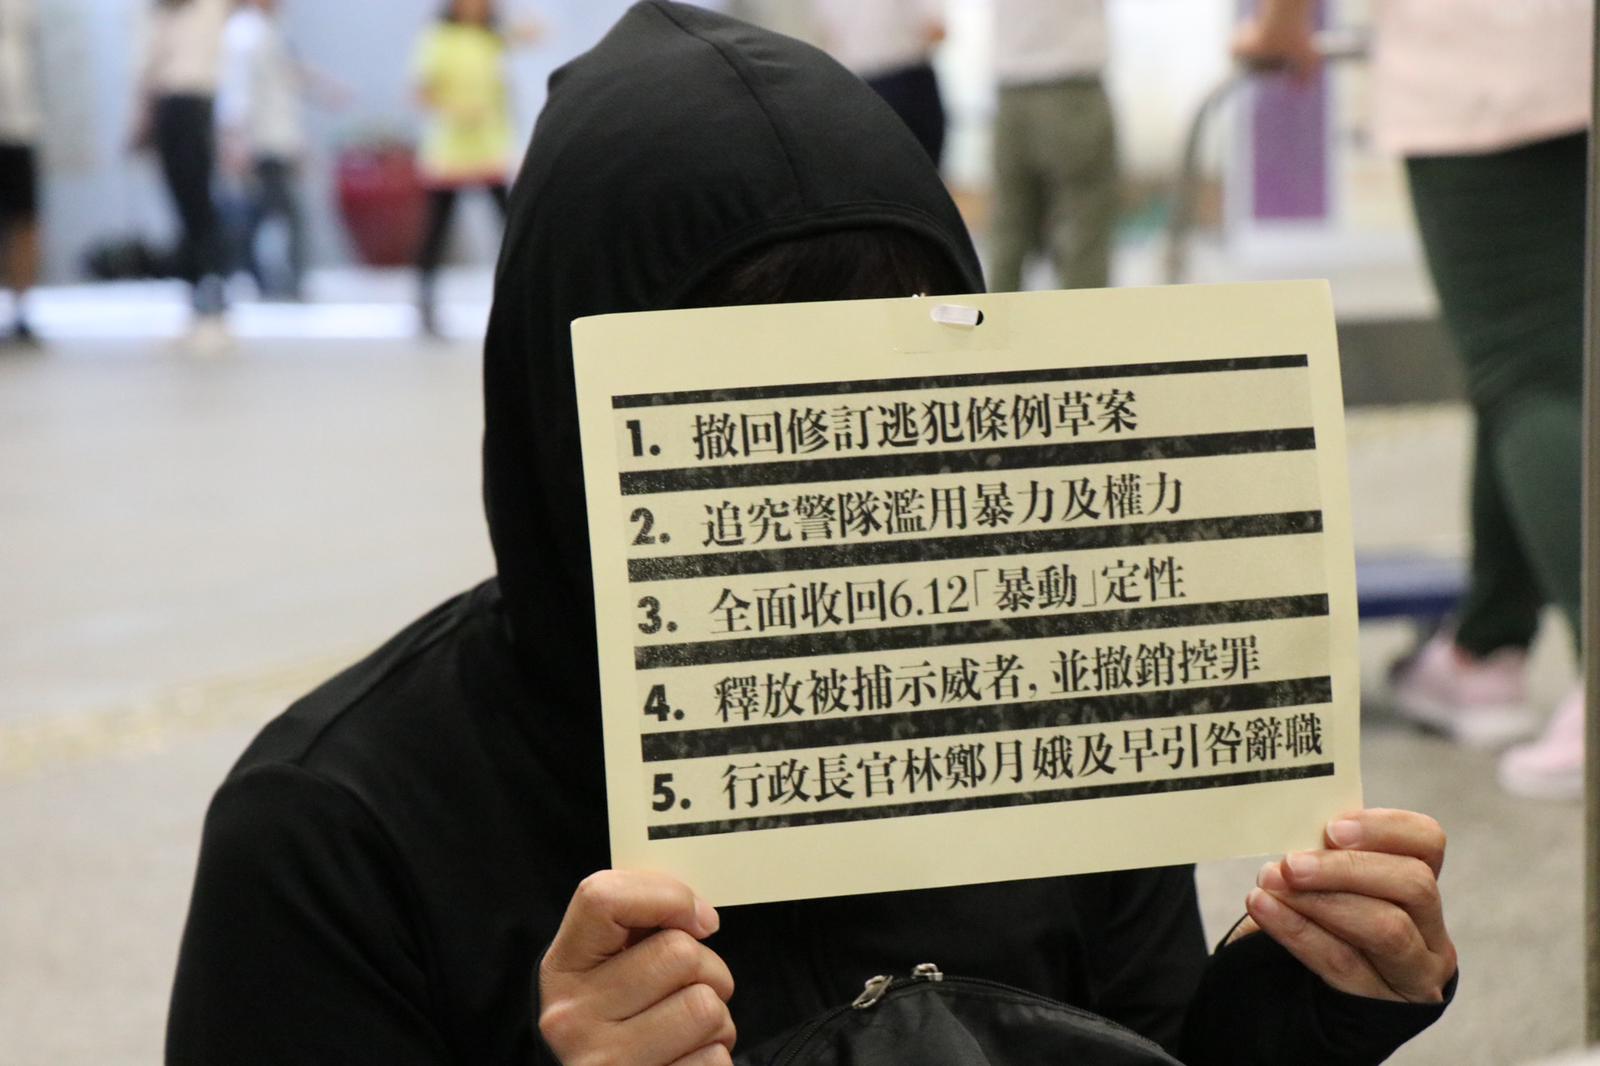 1. 撤回修訂逃犯條例草案
2. 追究警隊濫用暴力及權力
3. 全面收回6.12「暴動」定性
4. 釋放被捕示威者，並撤銷控罪
5. 行政長官林鄭月娥及早引咎辭職